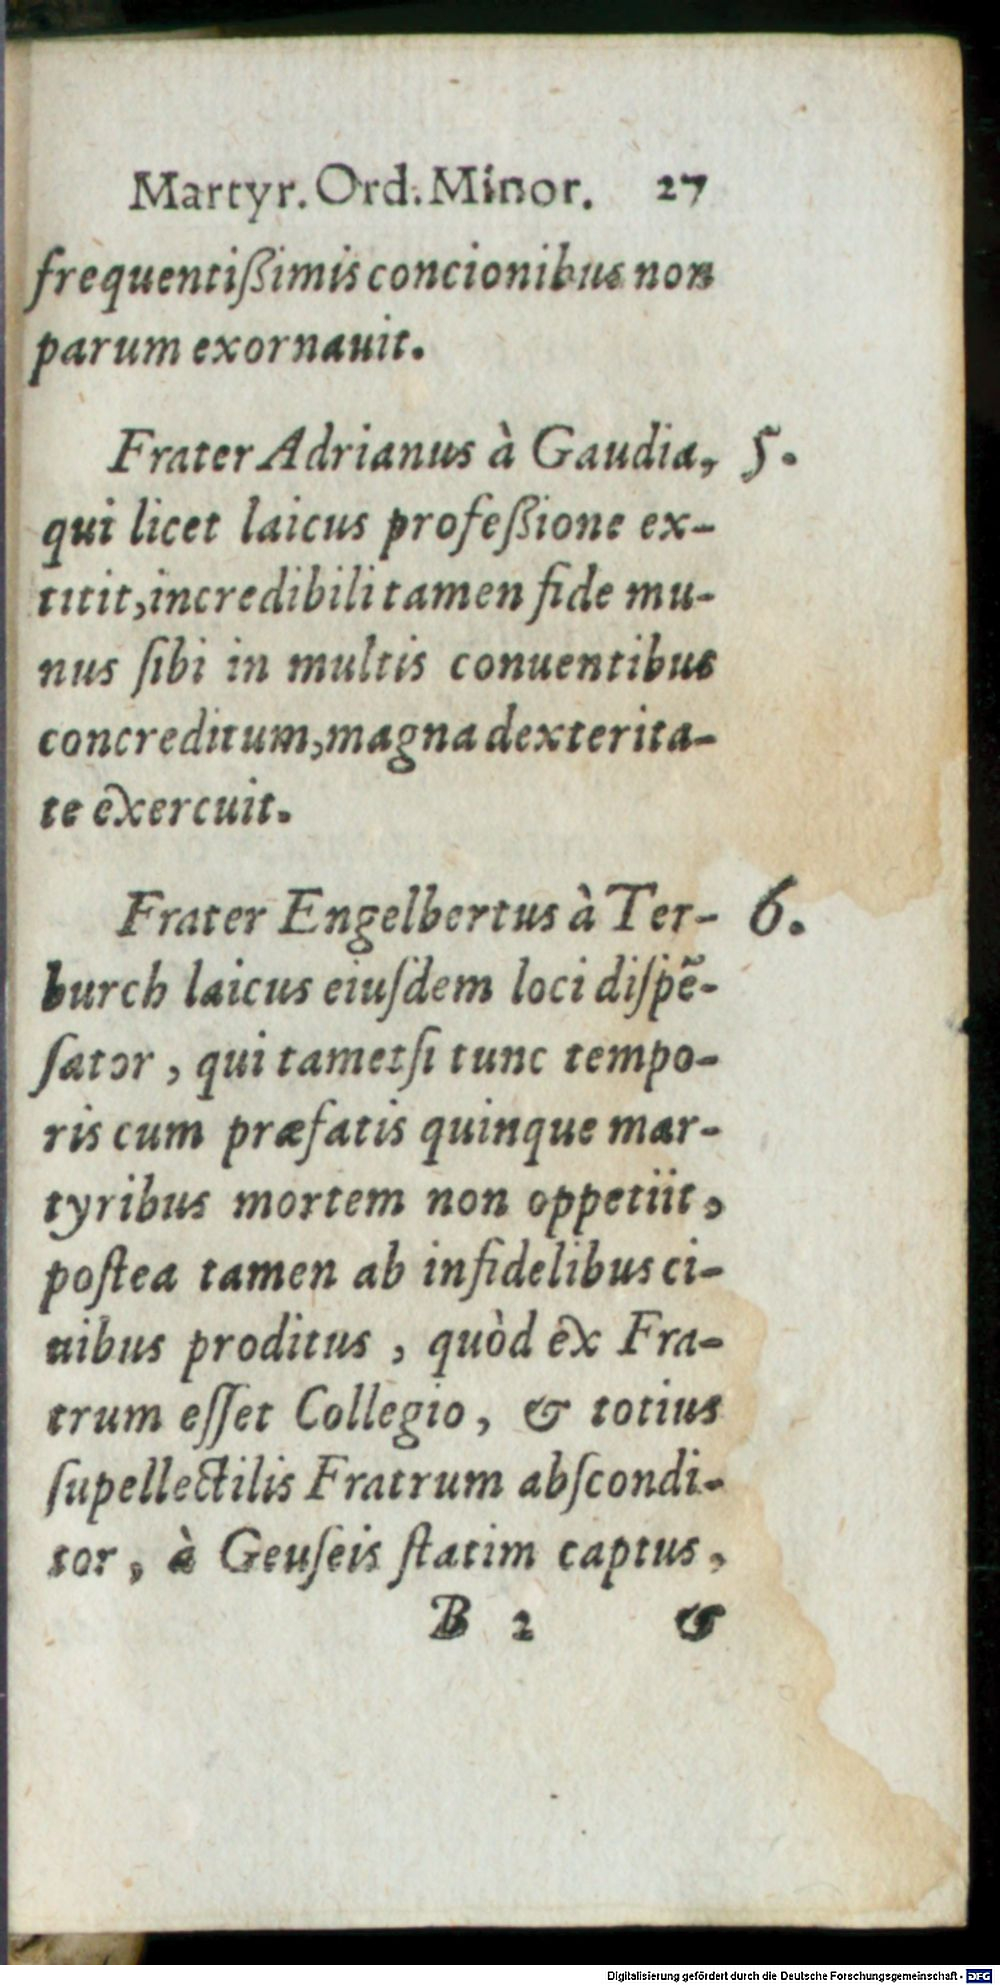 Martyr. Ord. Minor. 27
frequentißimis concionibus non
parum exornauit.
Frater Adrianus à Gaudia, 5.
qui licet laicus profeßione ex-
titit, incredibili tamen fide mu-
nus ſibi in multis conuentibus
concreditum, magna dexterita-
te exercuit.
Frater Engelbertus à Ter- 6.
burch laicus eiuſdem loci diſpẽ-
ſator, qui tametſi tunc tempo-
ris cum præfatis quinque mar-
tyribus mortem non oppetiit,
poſtea tamen ab infidelibus ci-
uibus proditus, quòd ex Fra-
trum eſſet Collegio, & totius
ſupellectilis Fratrum abſcondi-
tor, à Geuſeis ſtatim captus,
B 2 &
Digitalisierung gefördert durch die Deutsche Forschungsgemeinschaft - DFG